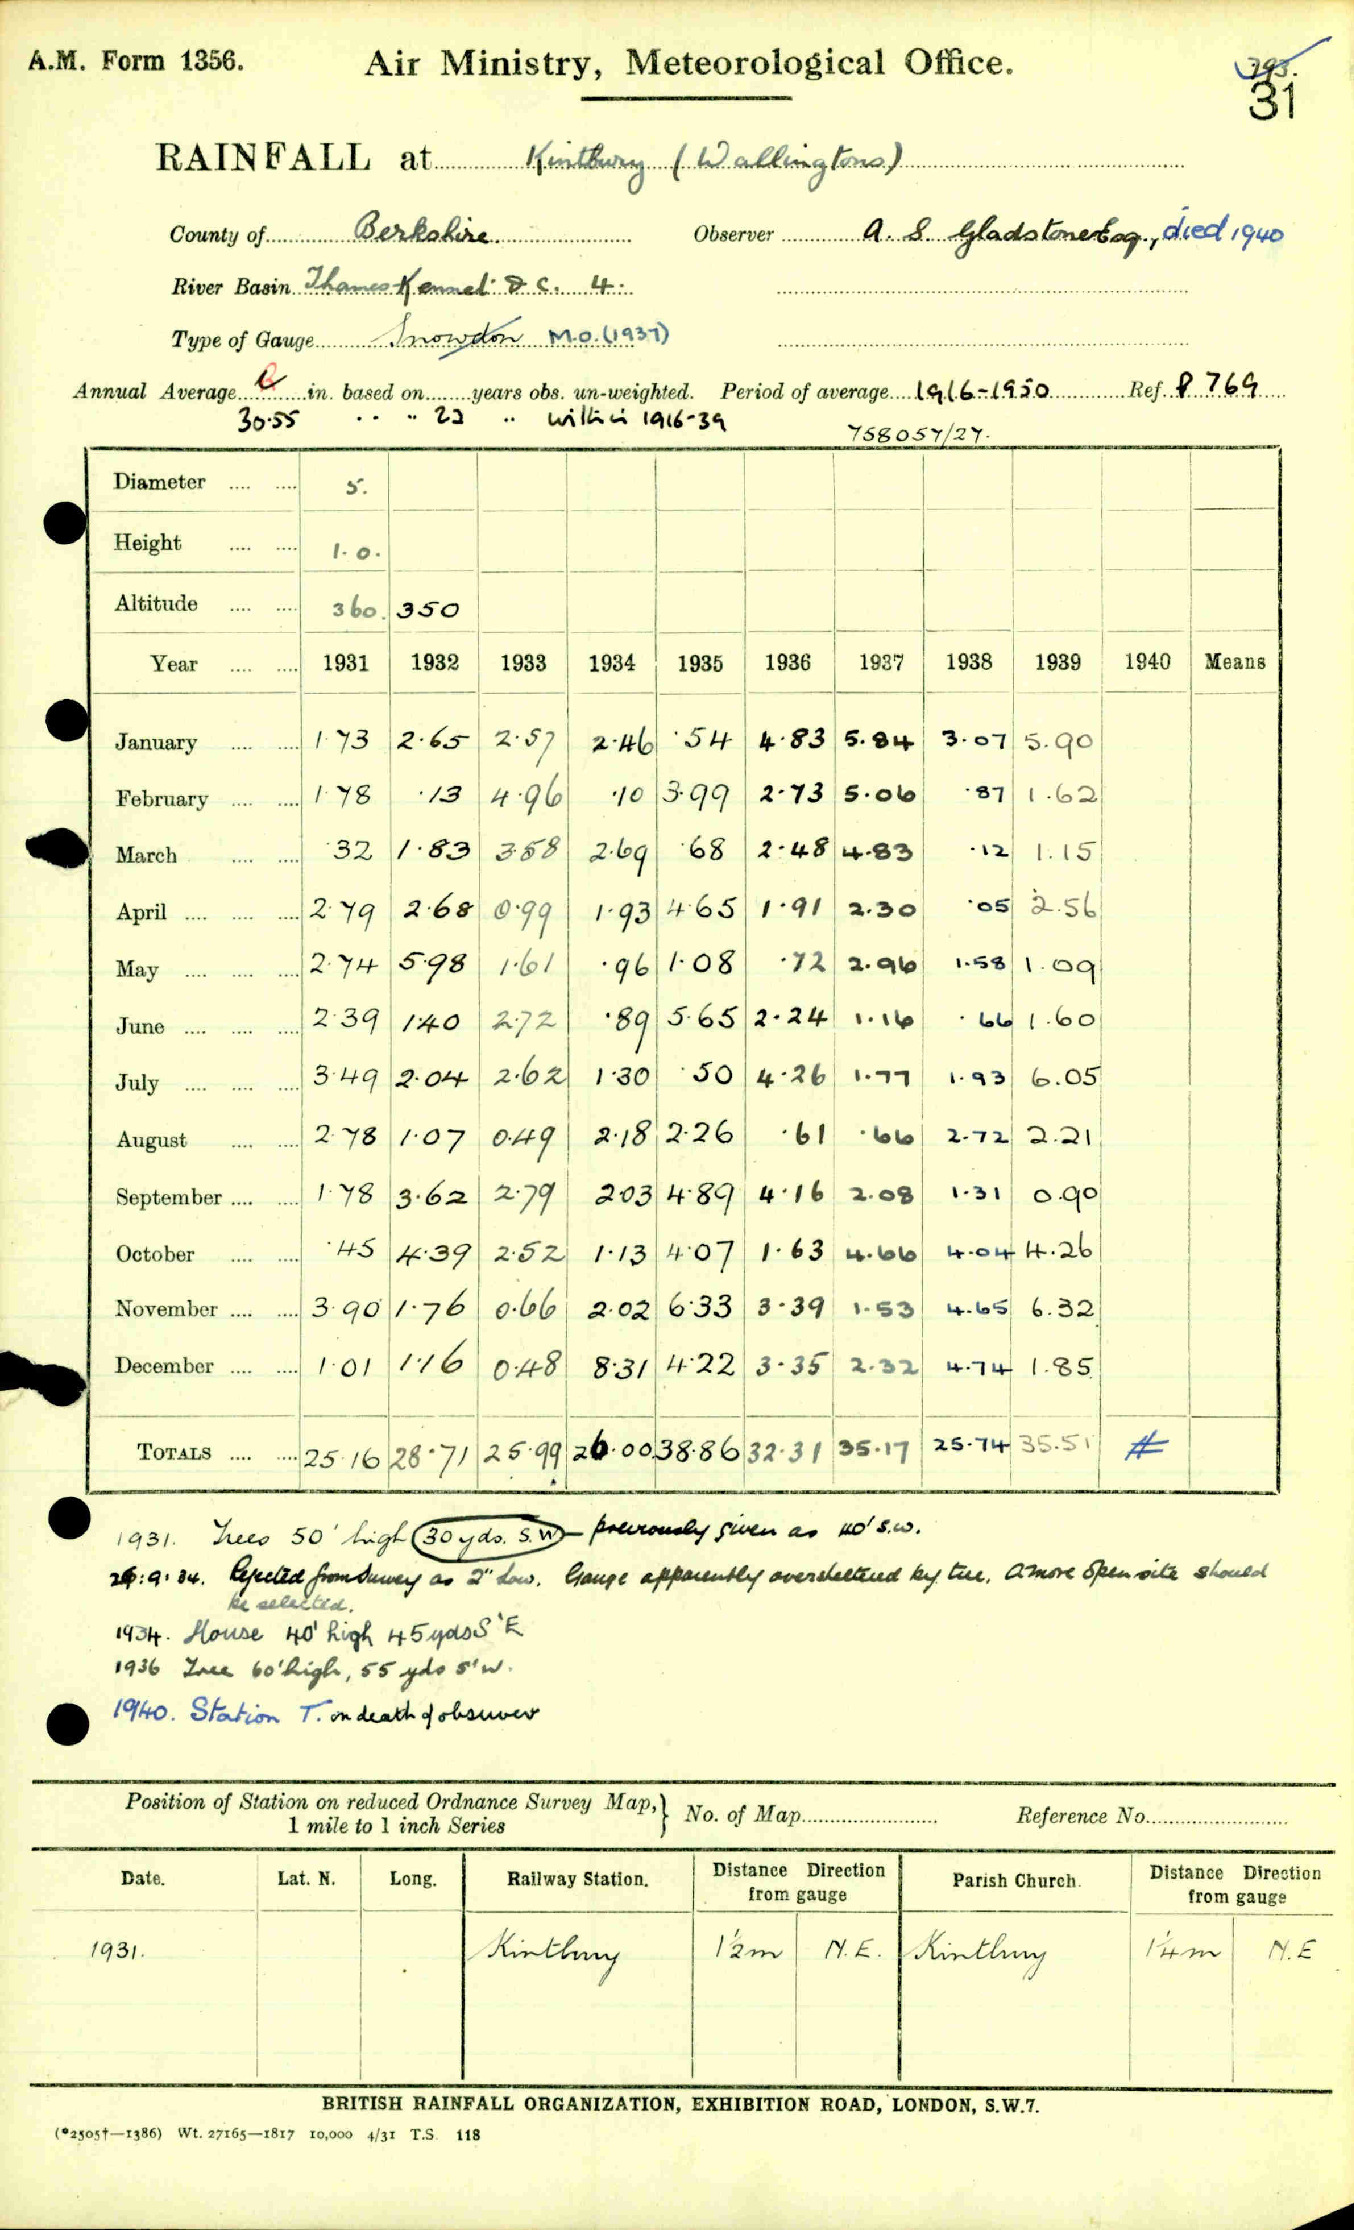 A.M. Form 1356.
Air Ministry, Meteorological Office.
793.
31
RAINFALL at Kintbury (Wallingtons)
County of Berkshire. Observer A. S. Gladstone Esq., died 1940
River Basin Thames Kennet & C. 4.
Type of Gauge Snowdon M.O. (1937)
Annual Average in. based on years obs. un-weighted. Period of average 1916-1950 Ref. P 769
30.55 .. .. 23 .. within 1916-39
758057/27.
Diameter .... .... 5.
Height .... .... 1.0.
Altitude .... .... 360. 350
Year .... .... 1931 1932 1933 1934 1935 1936 1937 1938 1939 1940 Means
January .... .... 1.73 2.65 2.57 2.46 .54 4.83 5.84 3.07 5.90
February .... .... 1.78 .13 4.96 .10 3.99 2.73 5.06 .87 1.62
March .... .... .32 1.83 3.58 2.69 .68 2.48 4.83 .12 1.15
April .... .... .... 2.79 2.68 0.99 1.93 4.65 1.91 2.30 .05 2.56
May .... .... .... 2.74 5.98 1.61 .96 1.08 .72 2.96 1.58 1.09
June .... .... .... 2.39 1.40 2.72 .89 5.65 2.24 1.16 .66 1.60
July .... .... .... 3.49 2.04 2.62 1.30 .50 4.26 1.77 1.93 6.05
August .... .... 2.78 1.07 0.49 2.18 2.26 .61 .66 2.72 2.21
September .... .... 1.78 3.62 2.79 2.03 4.89 4.16 2.08 1.31 0.90
October .... .... .45 4.39 2.52 1.13 4.07 1.63 4.66 4.04 4.26
November .... .... 3.90 1.76 0.66 2.02 6.33 3.39 1.53 4.65 6.32
December .... .... 1.01 1.16 0.48 8.31 4.22 3.35 2.32 4.74 1.85
TOTALS .... .... 25.16 28.71 25.99 26.00 38.86 32.31 35.17 25.74 35.51 #
1931. Trees 50' high 30 yds. S.W. - previously given as 40' S.W.
26:9:34. Rejected from Survey as 2" low. Gauge apparently oversheltered by tree. A more open site should
be selected.
1934. House 40' high 45 yds S'E
1936 Tree 60' high, 55 yds S'W.
1940. Station T. on death of observer
Position of Station on reduced Ordnance Survey Map, } No. of Map Reference No.
1 mile to 1 inch Series
Date. Lat. N. Long. Railway Station. Distance Direction from gauge Parish Church. Distance Direction from gauge
1931. Kintbury 1½m N.E. Kintbury 1¼m N.E
BRITISH RAINFALL ORGANIZATION, EXHIBITION ROAD, LONDON, S.W.7.
(*2505†—1386) Wt. 27165—1817 10,000 4/31 T.S. 118